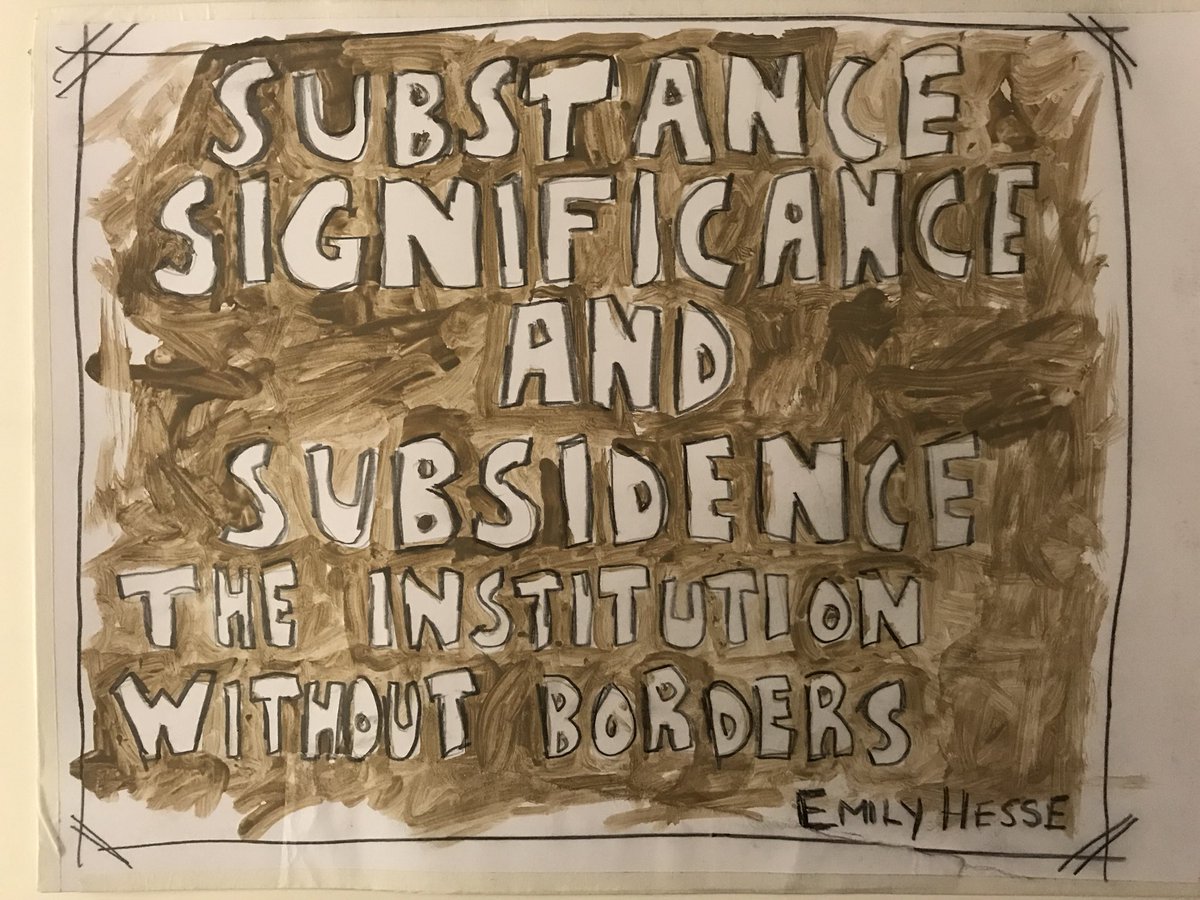 SUBSTANCE
SIGNIFICANCE
AND
SUBSIDENCE
THE INSTITUTION
WITHOUT BORDERS
EMILY HESSE